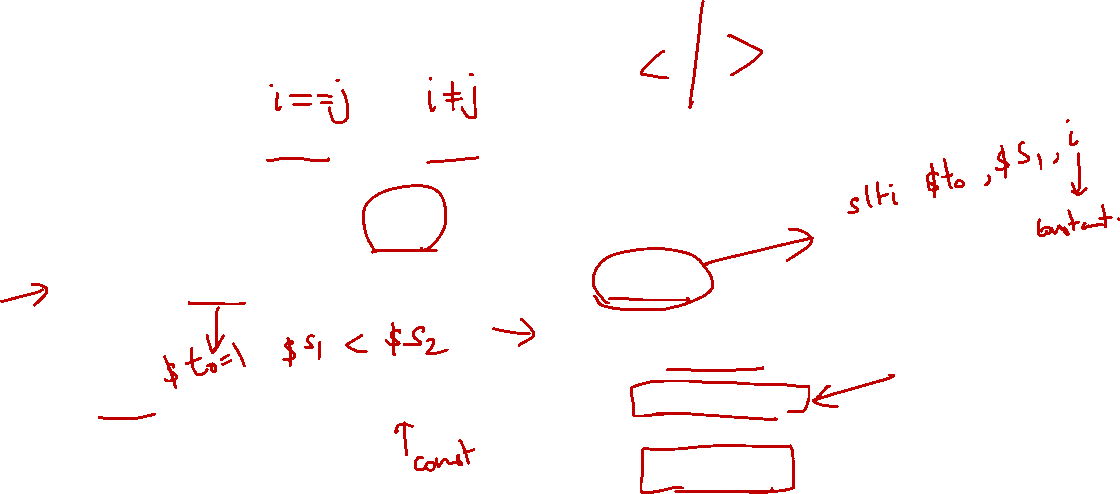 < / >
i==j i≠j
slti $t₀, $s₁, i
constant.
$t₀=1 $s₁ < $s₂
const